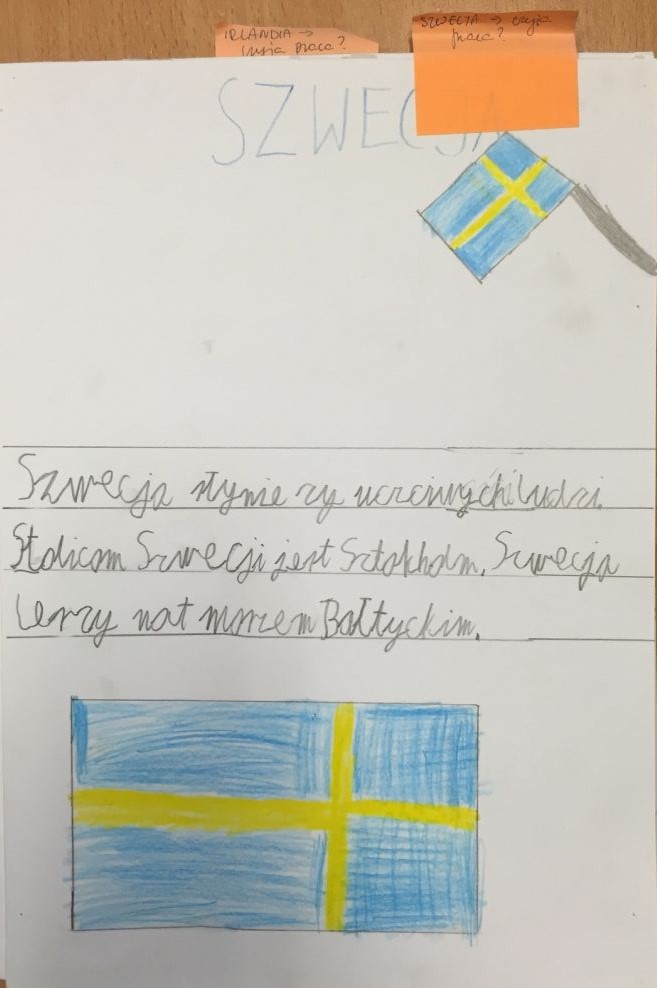 IRLANDIA →
czyja praca?
SZWECJA → czyja
praca?
SZWECJA
Szwecja słynie zy uczciwych ludzi.
Stolicom Szwecji jest Sztokholm. Szwecja
lerzy nat morzem Bałtyckim.